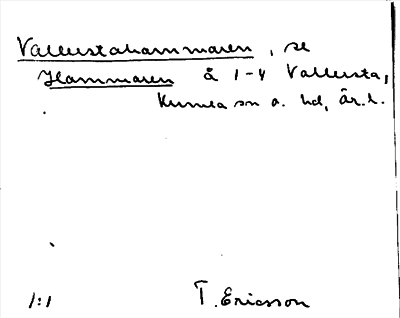 Vallerstahammaren, se
Hammaren å 1-4 Vallersta,
Kumla sn o. hd, Är. l.
1:1 T. Ericsson